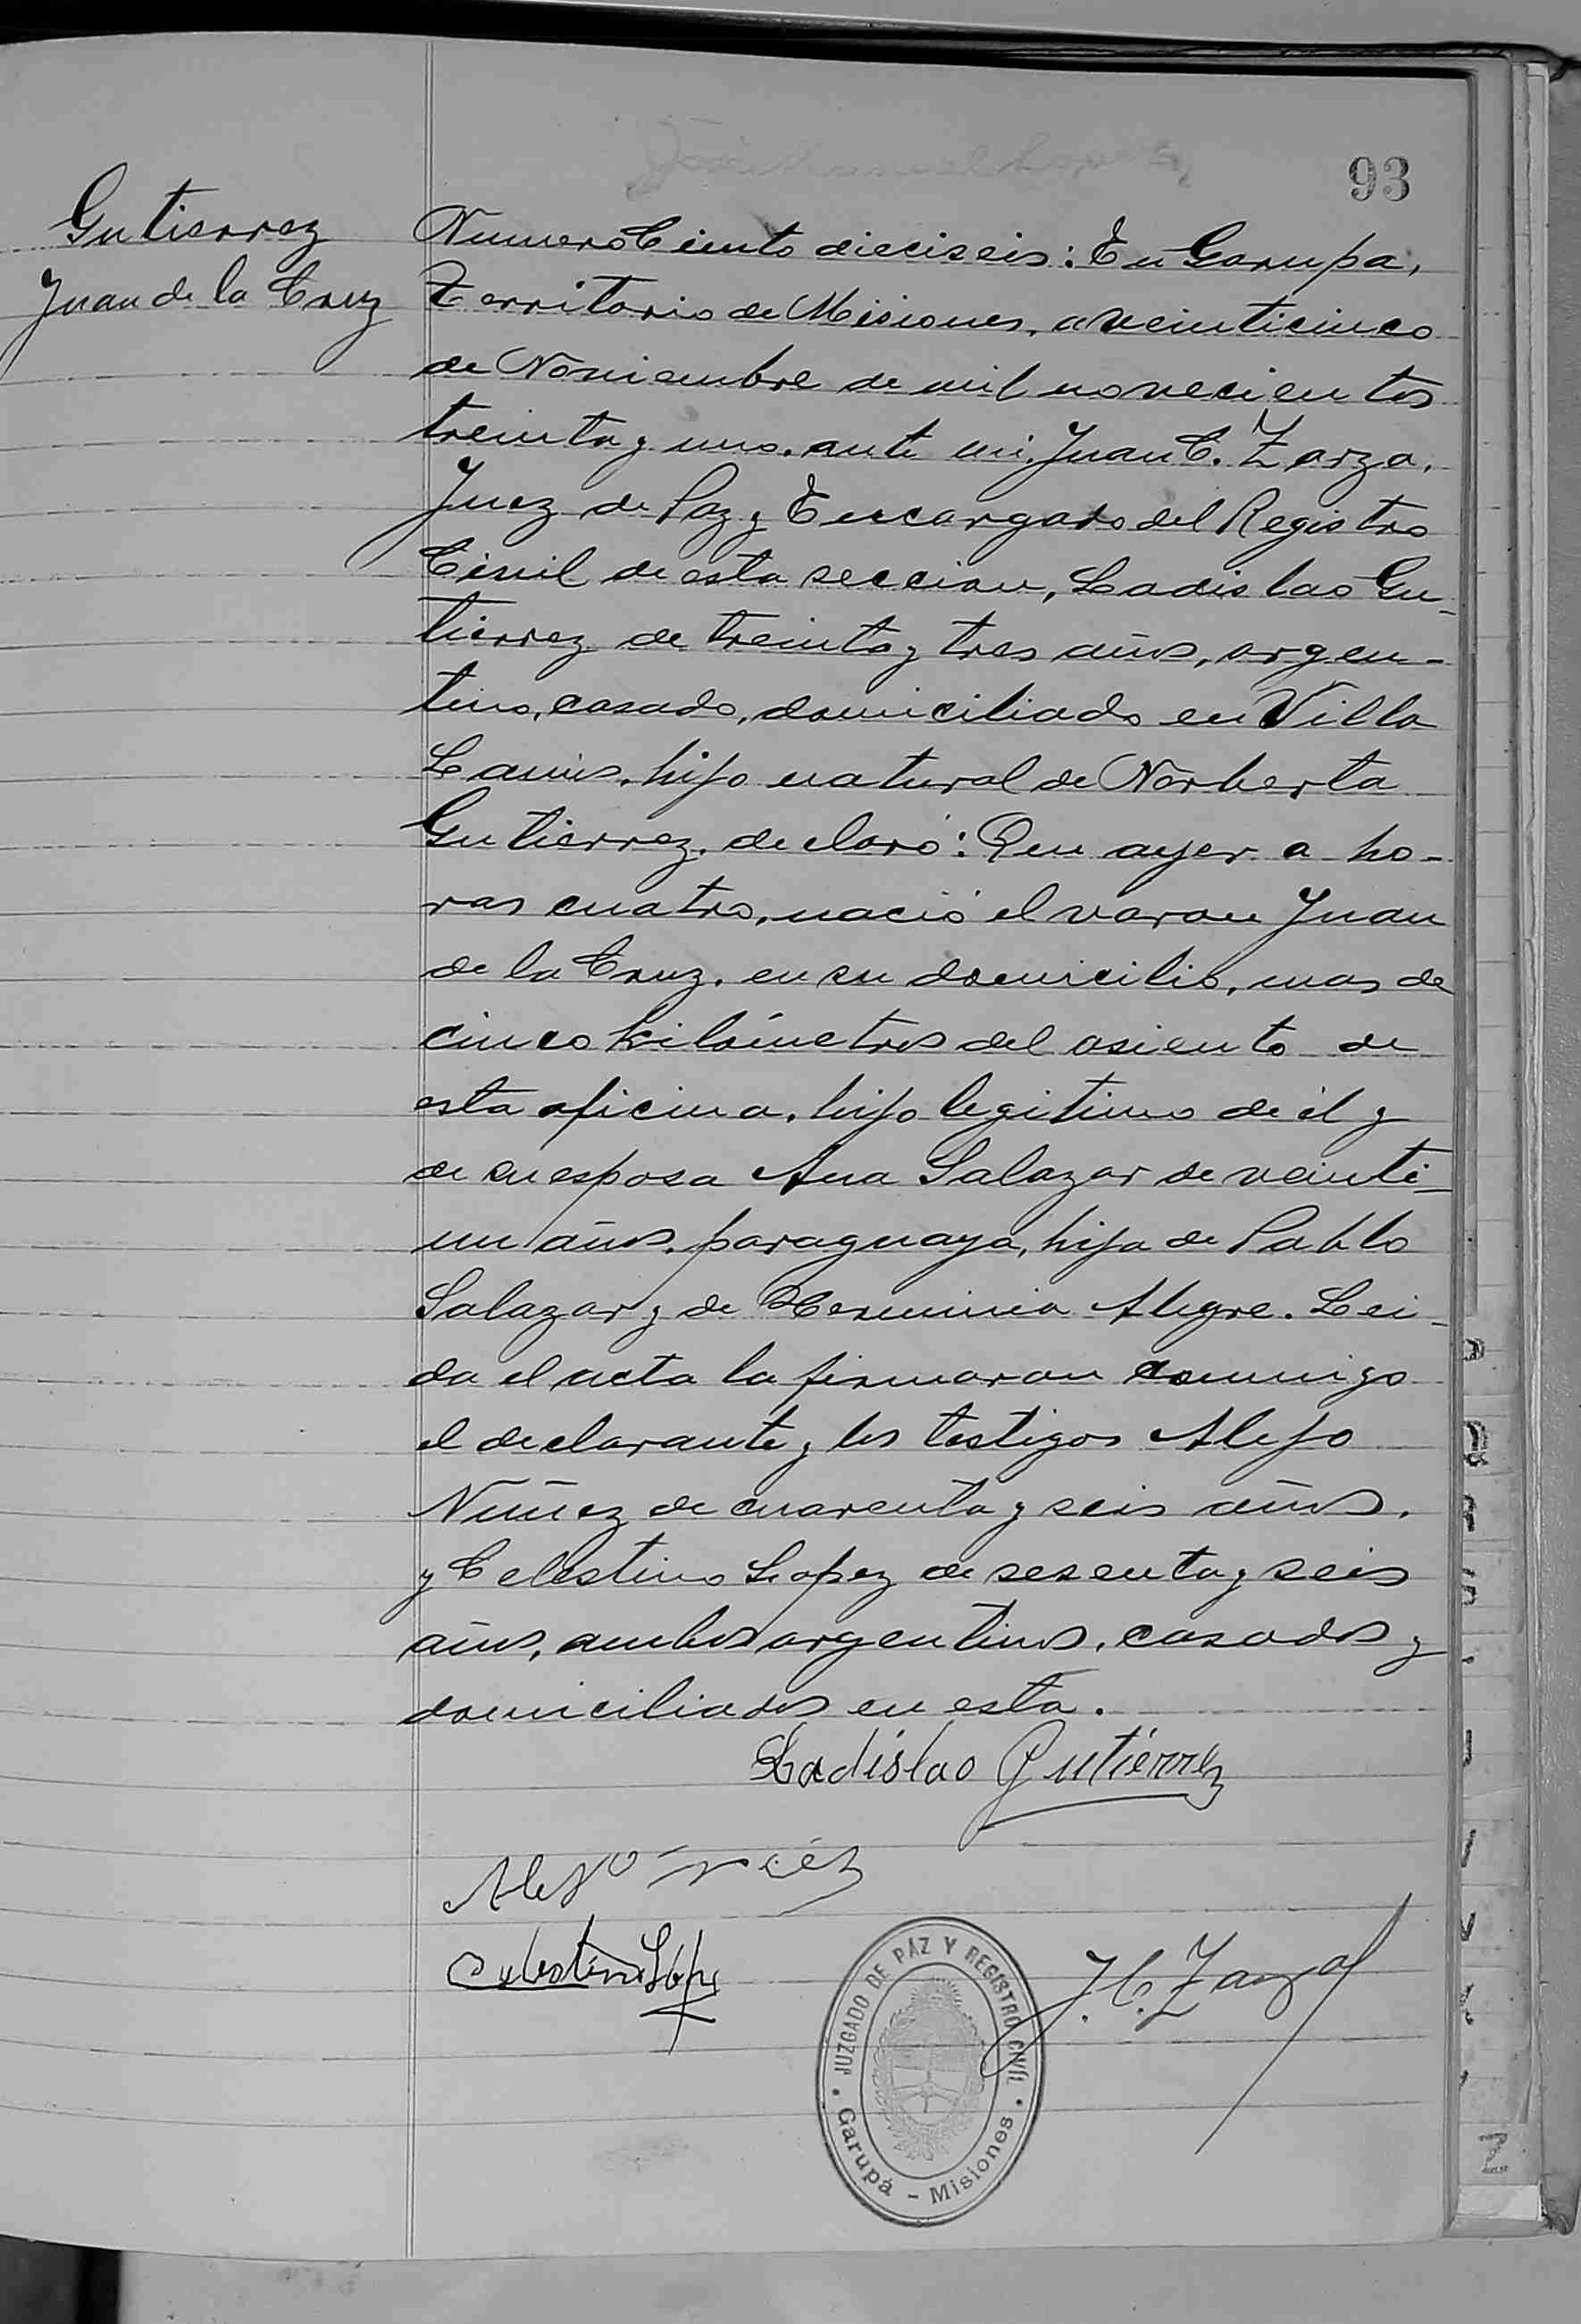 93
Gutierrez
Juan de la Cruz
Numero Ciento dieciseis: En Garupa,
Territorio de Misiones, a veinticinco
de Noviembre de mil novecientos
treinta y uno, ante mi, Juan C. Zarza,
Juez de Paz y Encargado del Registro
Civil de esta seccion, Ladislao Gu-
tierrez de treinta y tres años, argen-
tino, casado, domiciliado en Villa
Lanus, hijo natural de Norberta
Gutierrez, declaró: Que ayer a ho-
ras cuatro, nació el varon Juan
de la Cruz, en su domicilio, mas de
cinco kilómetros del asiento de
esta oficina, hijo legitimo de él y
de su esposa Ana Salazar de veinti-
un años, paraguaya, hija de Pablo
Salazar y de Herminia Alegre. Lei-
da el acta la firmaron conmigo
el declarante y los testigos Alejo
Nuñez de cuarenta y seis años,
y Celestino Lopez de sesenta y seis
años, ambos argentinos, casados y
domiciliados en esta.
Ladislao Gutiérrez
Celestino López
J. C. Zarza
JUZGADO DE PAZ Y REGISTRO CIVIL
Garupá - Misiones